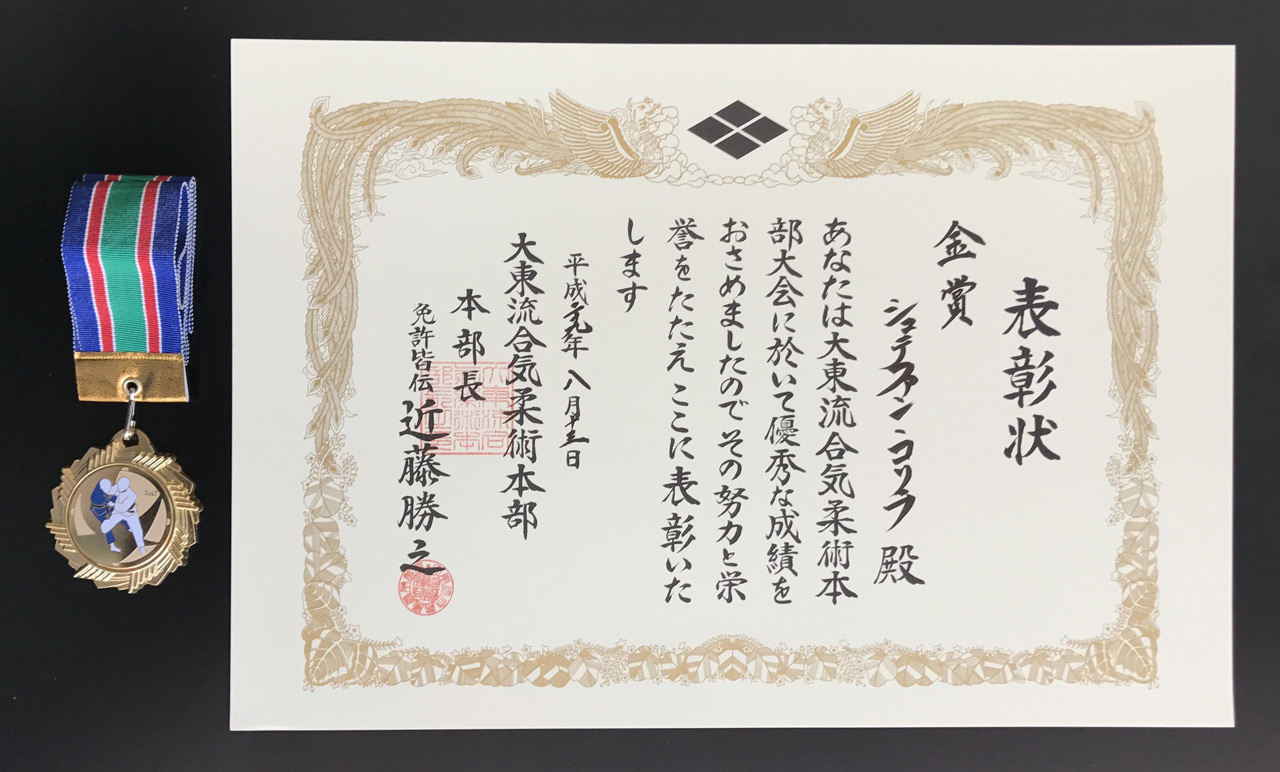 表彰状
金賞
シュテファン・コリラ 殿
あなたは大東流合気柔術本
部大会に於いて優秀な成績を
おさめましたのでその努力と栄
誉をたたえここに表彰いた
します
平成元年八月十三日
大東流合気柔術本部
本部長
免許皆伝 近藤勝之